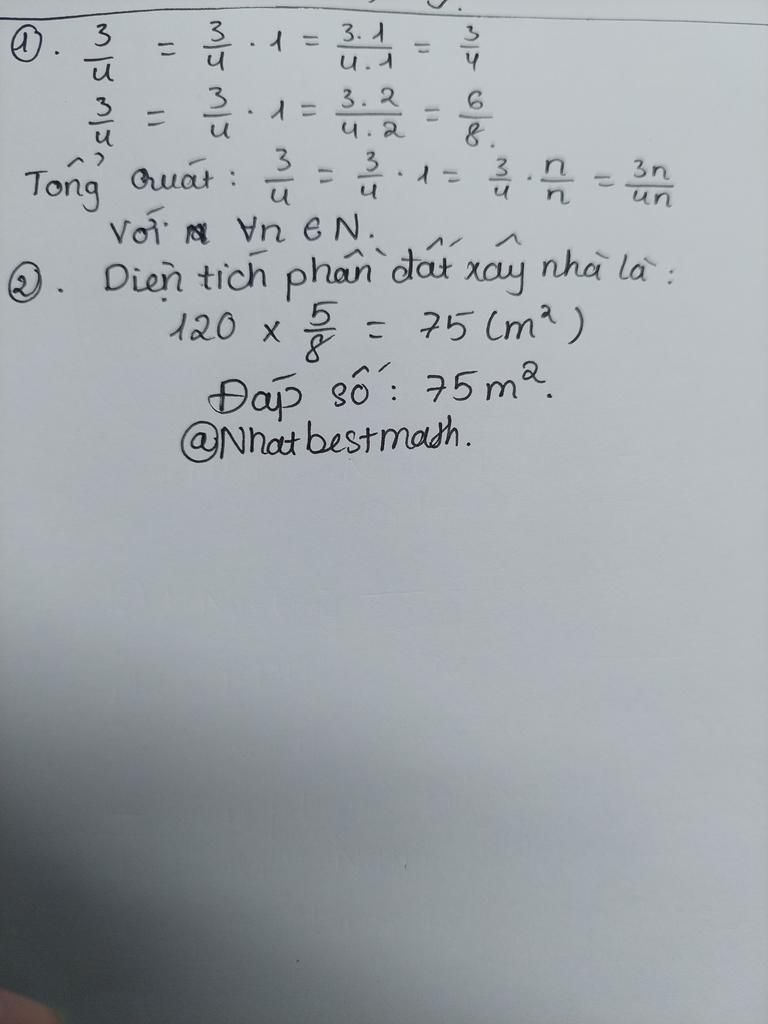 ①. 3/4 = 3/4 · 1 = 3.1/4.1 = 3/4
3/4 = 3/4 · 1 = 3.2/4.2 = 6/8.
Tổng Quát: 3/4 = 3/4 · 1 = 3/4 · n/n = 3n/4n
Với ∀n ∈ N.
②. Diện tích phần đất xây nhà là:
120 x 5/8 = 75 (m²)
Đáp số: 75m².
@Nhatbestmath.